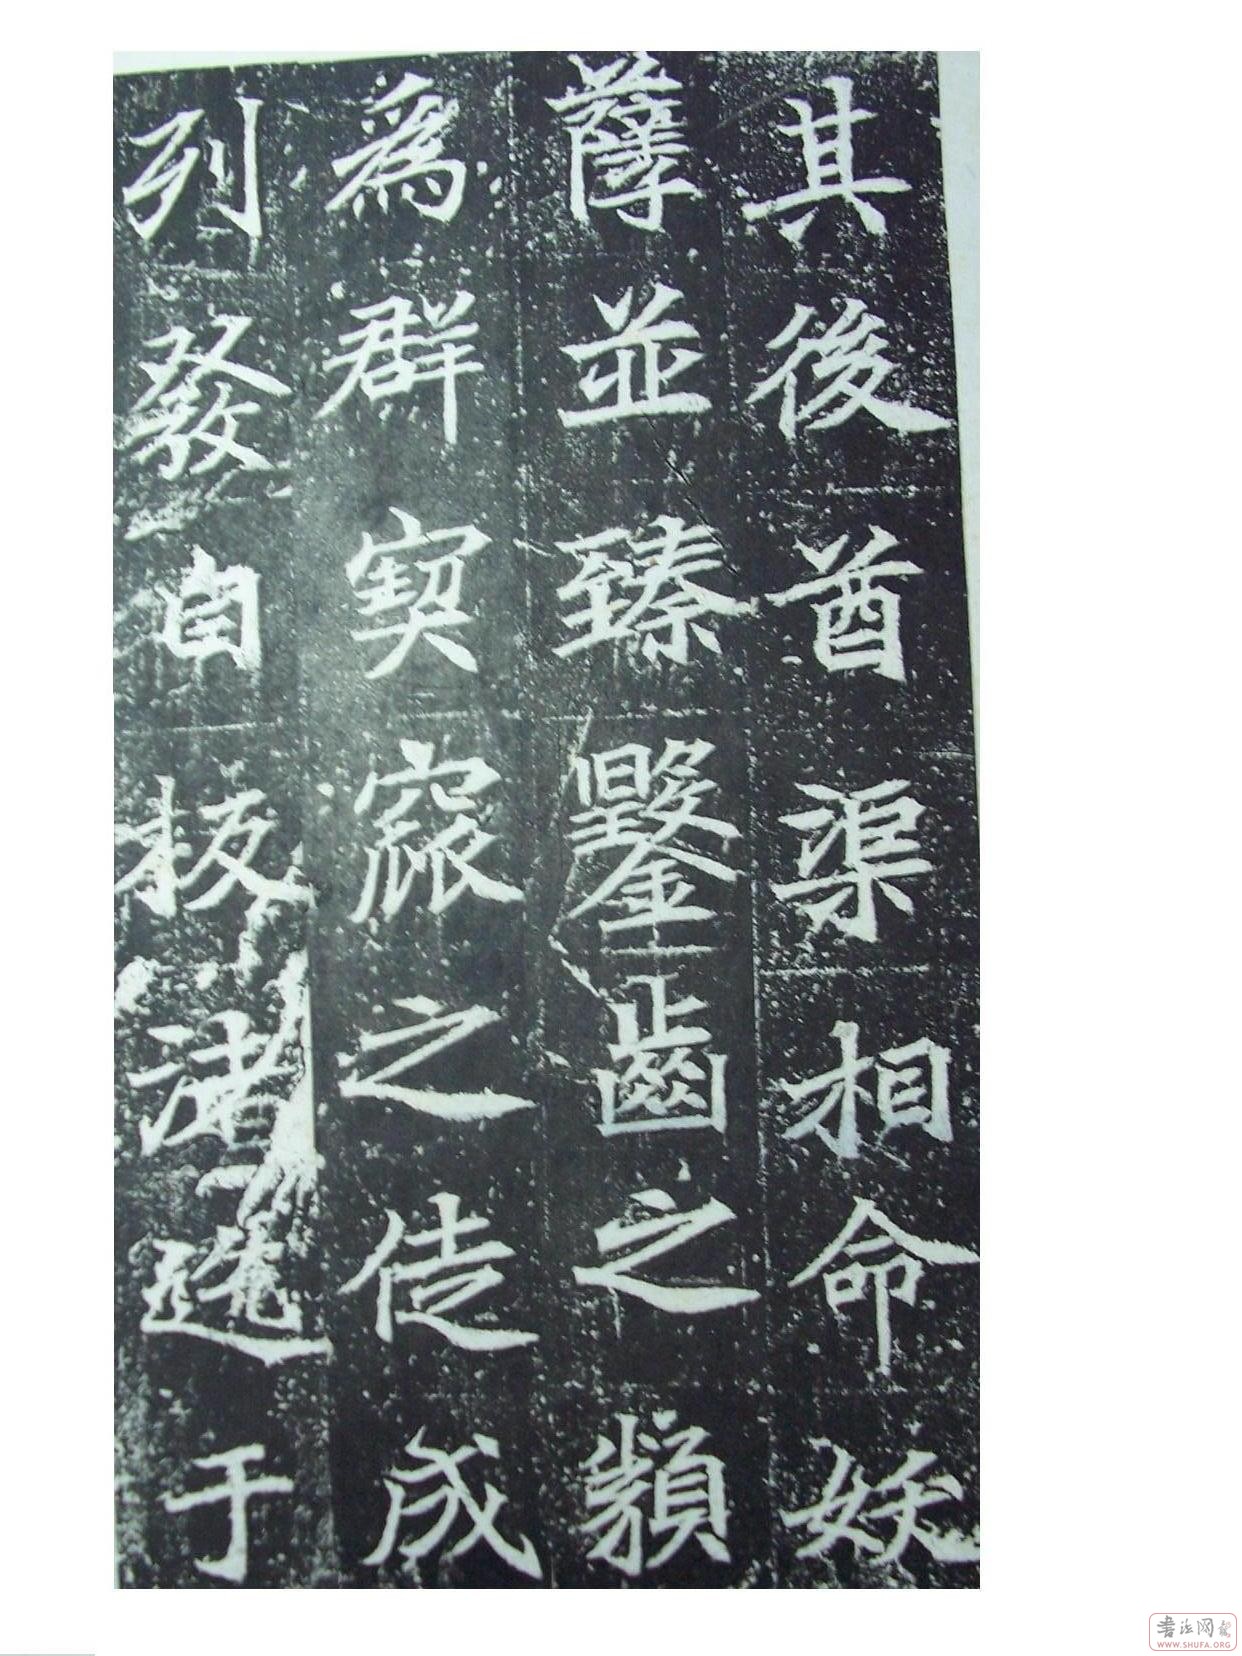 其後酋渠相命妖
薩並臻鑿齒之類
為群窫窳之徒成
列發自板渚逃于
书法网
WWW.SHUFA.ORG